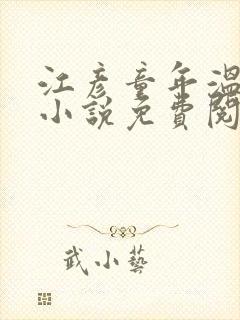 江彦童年溫
小說免費閱
武小藝